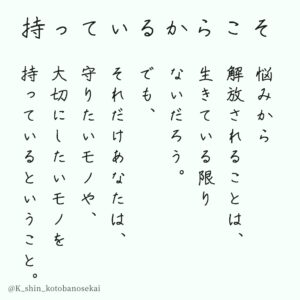 持っているからこそ
悩みから
解放されることは、
生きている限り
ないだろう。
でも、
それだけあなたは、
守りたいモノや、
大切にしたいモノを
持っているということ。
@K_shin_kotobanosekai